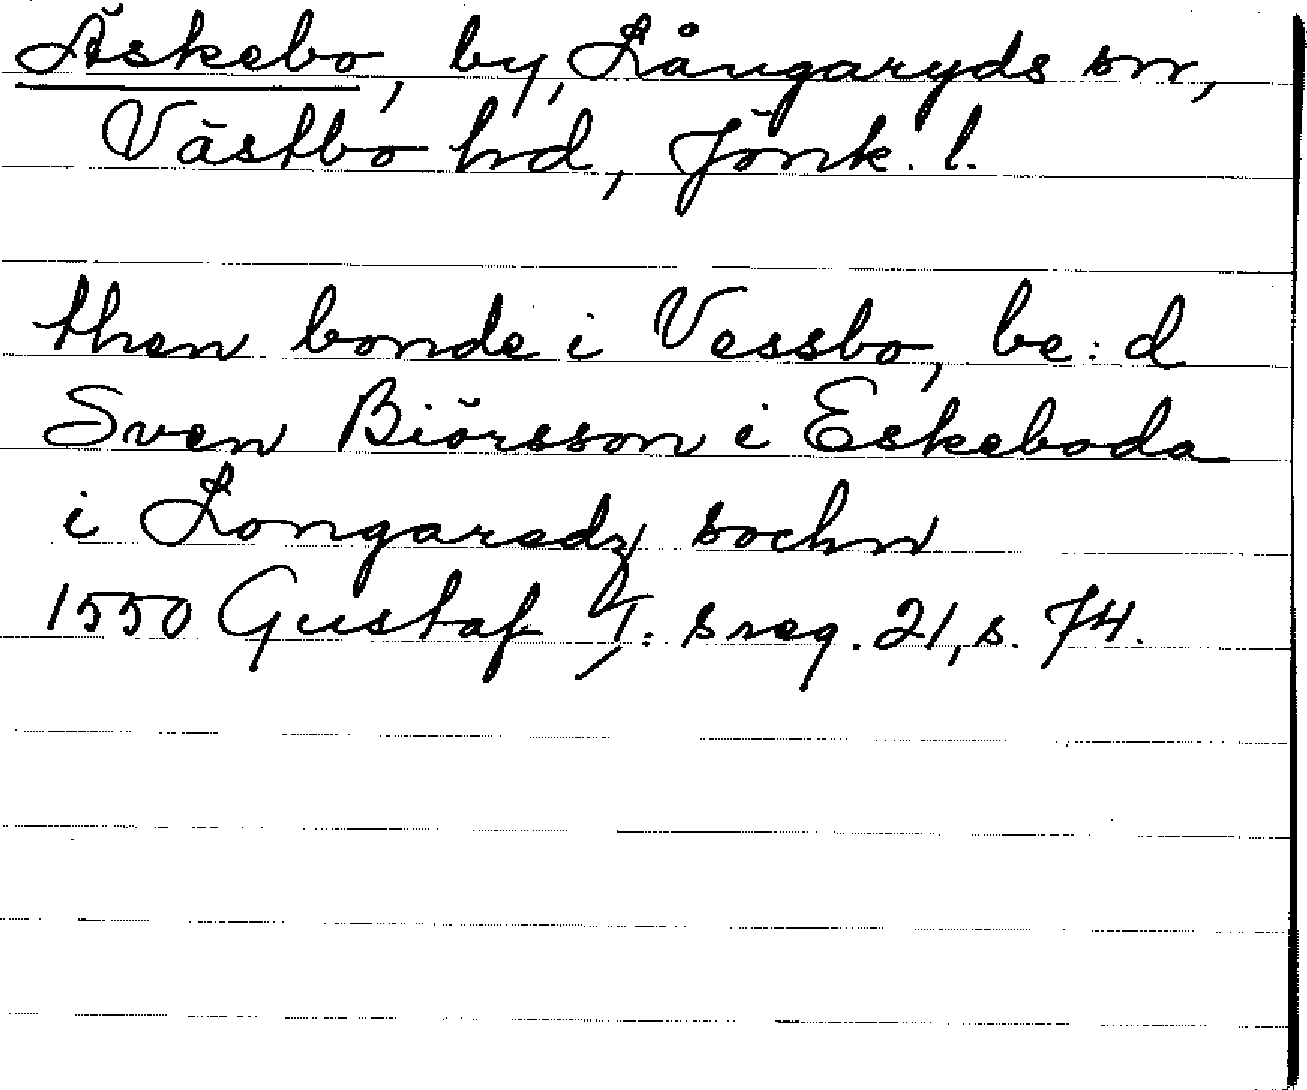 Äskebo, by, Långaryds sn,
Västbo hd, Jönk. l.
then bonde i Vessbo, be:d
Sven Biörsson i Eskeboda
i Longaredz sochn
1550 Gustaf I: s reg. 21, s. 74.